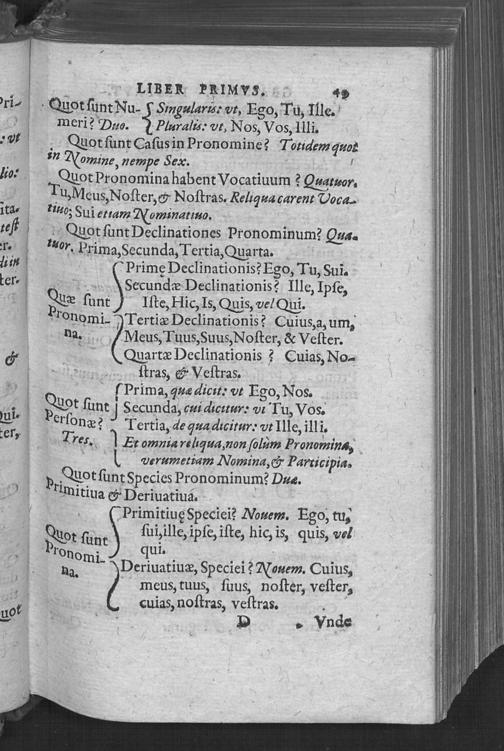 LIBER PRIMVS. 49
Quot sunt Nu- Singularis: vt, Ego, Tu, Ille.
meri? Duo. Pluralis: vt, Nos, Vos, Illi.
Quot sunt Casus in Pronomine? Totidem quot
in Nomine, nempe Sex.
Quot Pronomina habent Vocatiuum? Quatuor.
Tu, Meus, Noster, & Nostras. Reliqua carent Voca-
tiuo; Sui etiam Nominatiuo.
Quot sunt Declinationes Pronominum? Qua-
tuor. Prima, Secunda, Tertia, Quarta.
Quæ sunt
Pronomi-
na.
Primę Declinationis? Ego, Tu, Sui.
Secundæ Declinationis? Ille, Ipse,
Iste, Hic, Is, Quis, vel Qui.
Tertiæ Declinationis? Cuius, a, um,
Meus, Tuus, Suus, Noster, & Vester.
Quartæ Declinationis? Cuias, No-
stras, & Vestras.
Quot sunt
Personæ?
Tres.
Prima, quæ dicit: vt Ego, Nos.
Secunda, cui dicitur: vt Tu, Vos.
Tertia, de qua dicitur: vt Ille, illi.
Et omnia reliqua, non solùm Pronomina,
verumetiam Nomina, & Participia.
Quot sunt Species Pronominum? Duæ.
Primitiua & Deriuatiua.
Quot sunt
Pronomi-
na.
Primitiuę Speciei? Nouem. Ego, tu,
sui, ille, ipse, iste, hic, is, quis, vel
qui.
Deriuatiuæ, Speciei? Nouem. Cuius,
meus, tuus, suus, noster, vester,
cuias, nostras, vestras.
D Vnde
Pri-
: vt
lio:
ita.
test
er.
di in
ter.
&
Qui.
ter,
Quot